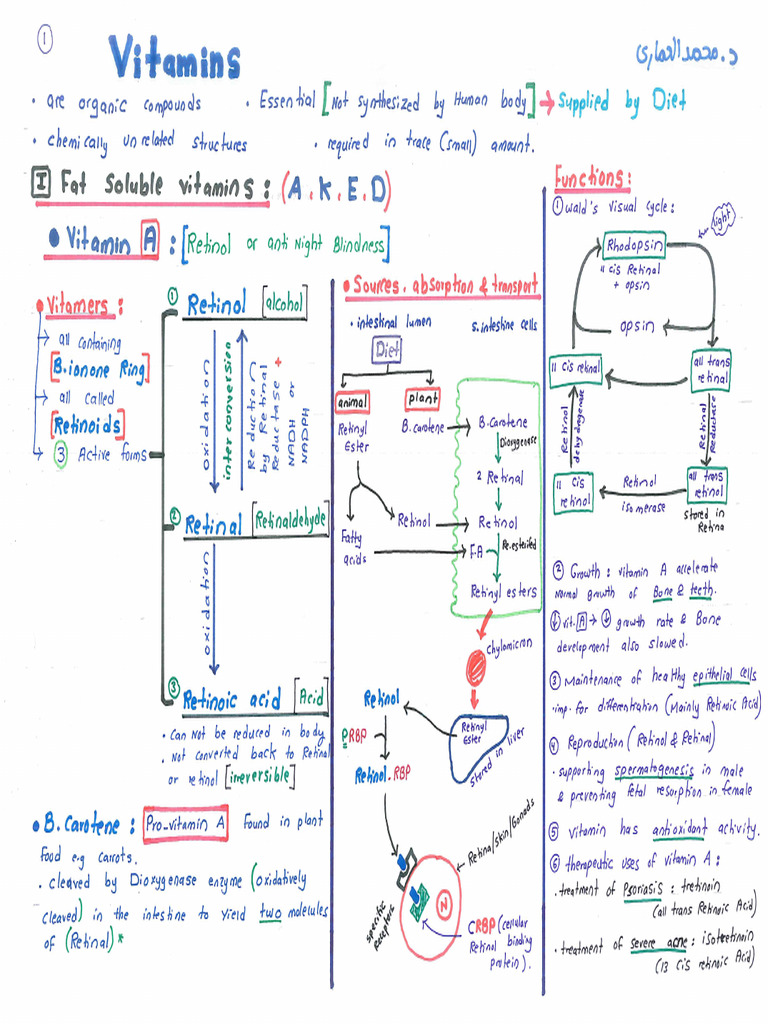 1
Vitamins
د. محمد
• are organic compounds • Essential [Not synthesized by Human body] → Supplied by Diet
• chemically unrelated structures • required in trace (small) amount.
I Fat Soluble vitamins : (A.K.E.D)
• Vitamin A : [Retinol or anti Night Blindness]
• Vitamers :
→ all containing
[B.ionone Ring]
→ all called
[Retinoids]
→ 3 Active forms
① Retinol [alcohol]
oxidation
interconversion
Reduction
by Retinal
Reductase +
NADH or
NADPH
② Retinal [Retinaldehyde]
oxidation
③ Retinoic acid [Acid]
• Can Not be reduced in body
• Not converted back to Retinal
or retinol [irreversible]
• B.carotene : Pro-vitamin A Found in plant
Food e.g carrots.
• cleaved by Dioxygenase enzyme (oxidatively
cleaved) in the intestine to yield two molecules
of (Retinal)*
• Sources, absorption & transport
• intestinal lumen S.intestine cells
Diet
animal plant
Retinyl
Ester
B.carotene → B.carotene
Dioxygenase
2 Retinal
Retinol → Retinol
Fatty
acids
F.A Re.esterified
Retinyl esters
chylomicron
Retinyl
Ester
stored in liver
Retinol
PRBP
Retinol.RBP
Retina/Skin/Gonads
specific
Receptors
N
CRBP (cellular
Retinol binding
protein).
Functions :
① wald's visual cycle :
light
Rhodopsin
11 cis Retinal
+ opsin
opsin
11 cis retinal
all trans
retinal
Retinol
dehydogenase
Retinal
Reductase
11 cis
retinol
Retinol
isomerase
all trans
retinol
stored in
Retina
② Growth : vitamin A accelerate
normal growth of Bone & teeth.
↓ vit. A → ↓ growth rate & Bone
development also slowed.
③ Maintenance of healthy epithelial cells
• imp. for differentiation (Mainly Retinoic Acid)
④ Reproduction (Retinol & Retinal)
• supporting spermatogenesis in male
& preventing fetal resorption in female
⑤ vitamin has antioxidant activity.
⑥ therapeutic uses of vitamin A :
• treatment of Psoriasis : tretinoin
(all trans Retinoic Acid)
• treatment of severe acne : isotretinoin
(13 cis retinoic Acid)